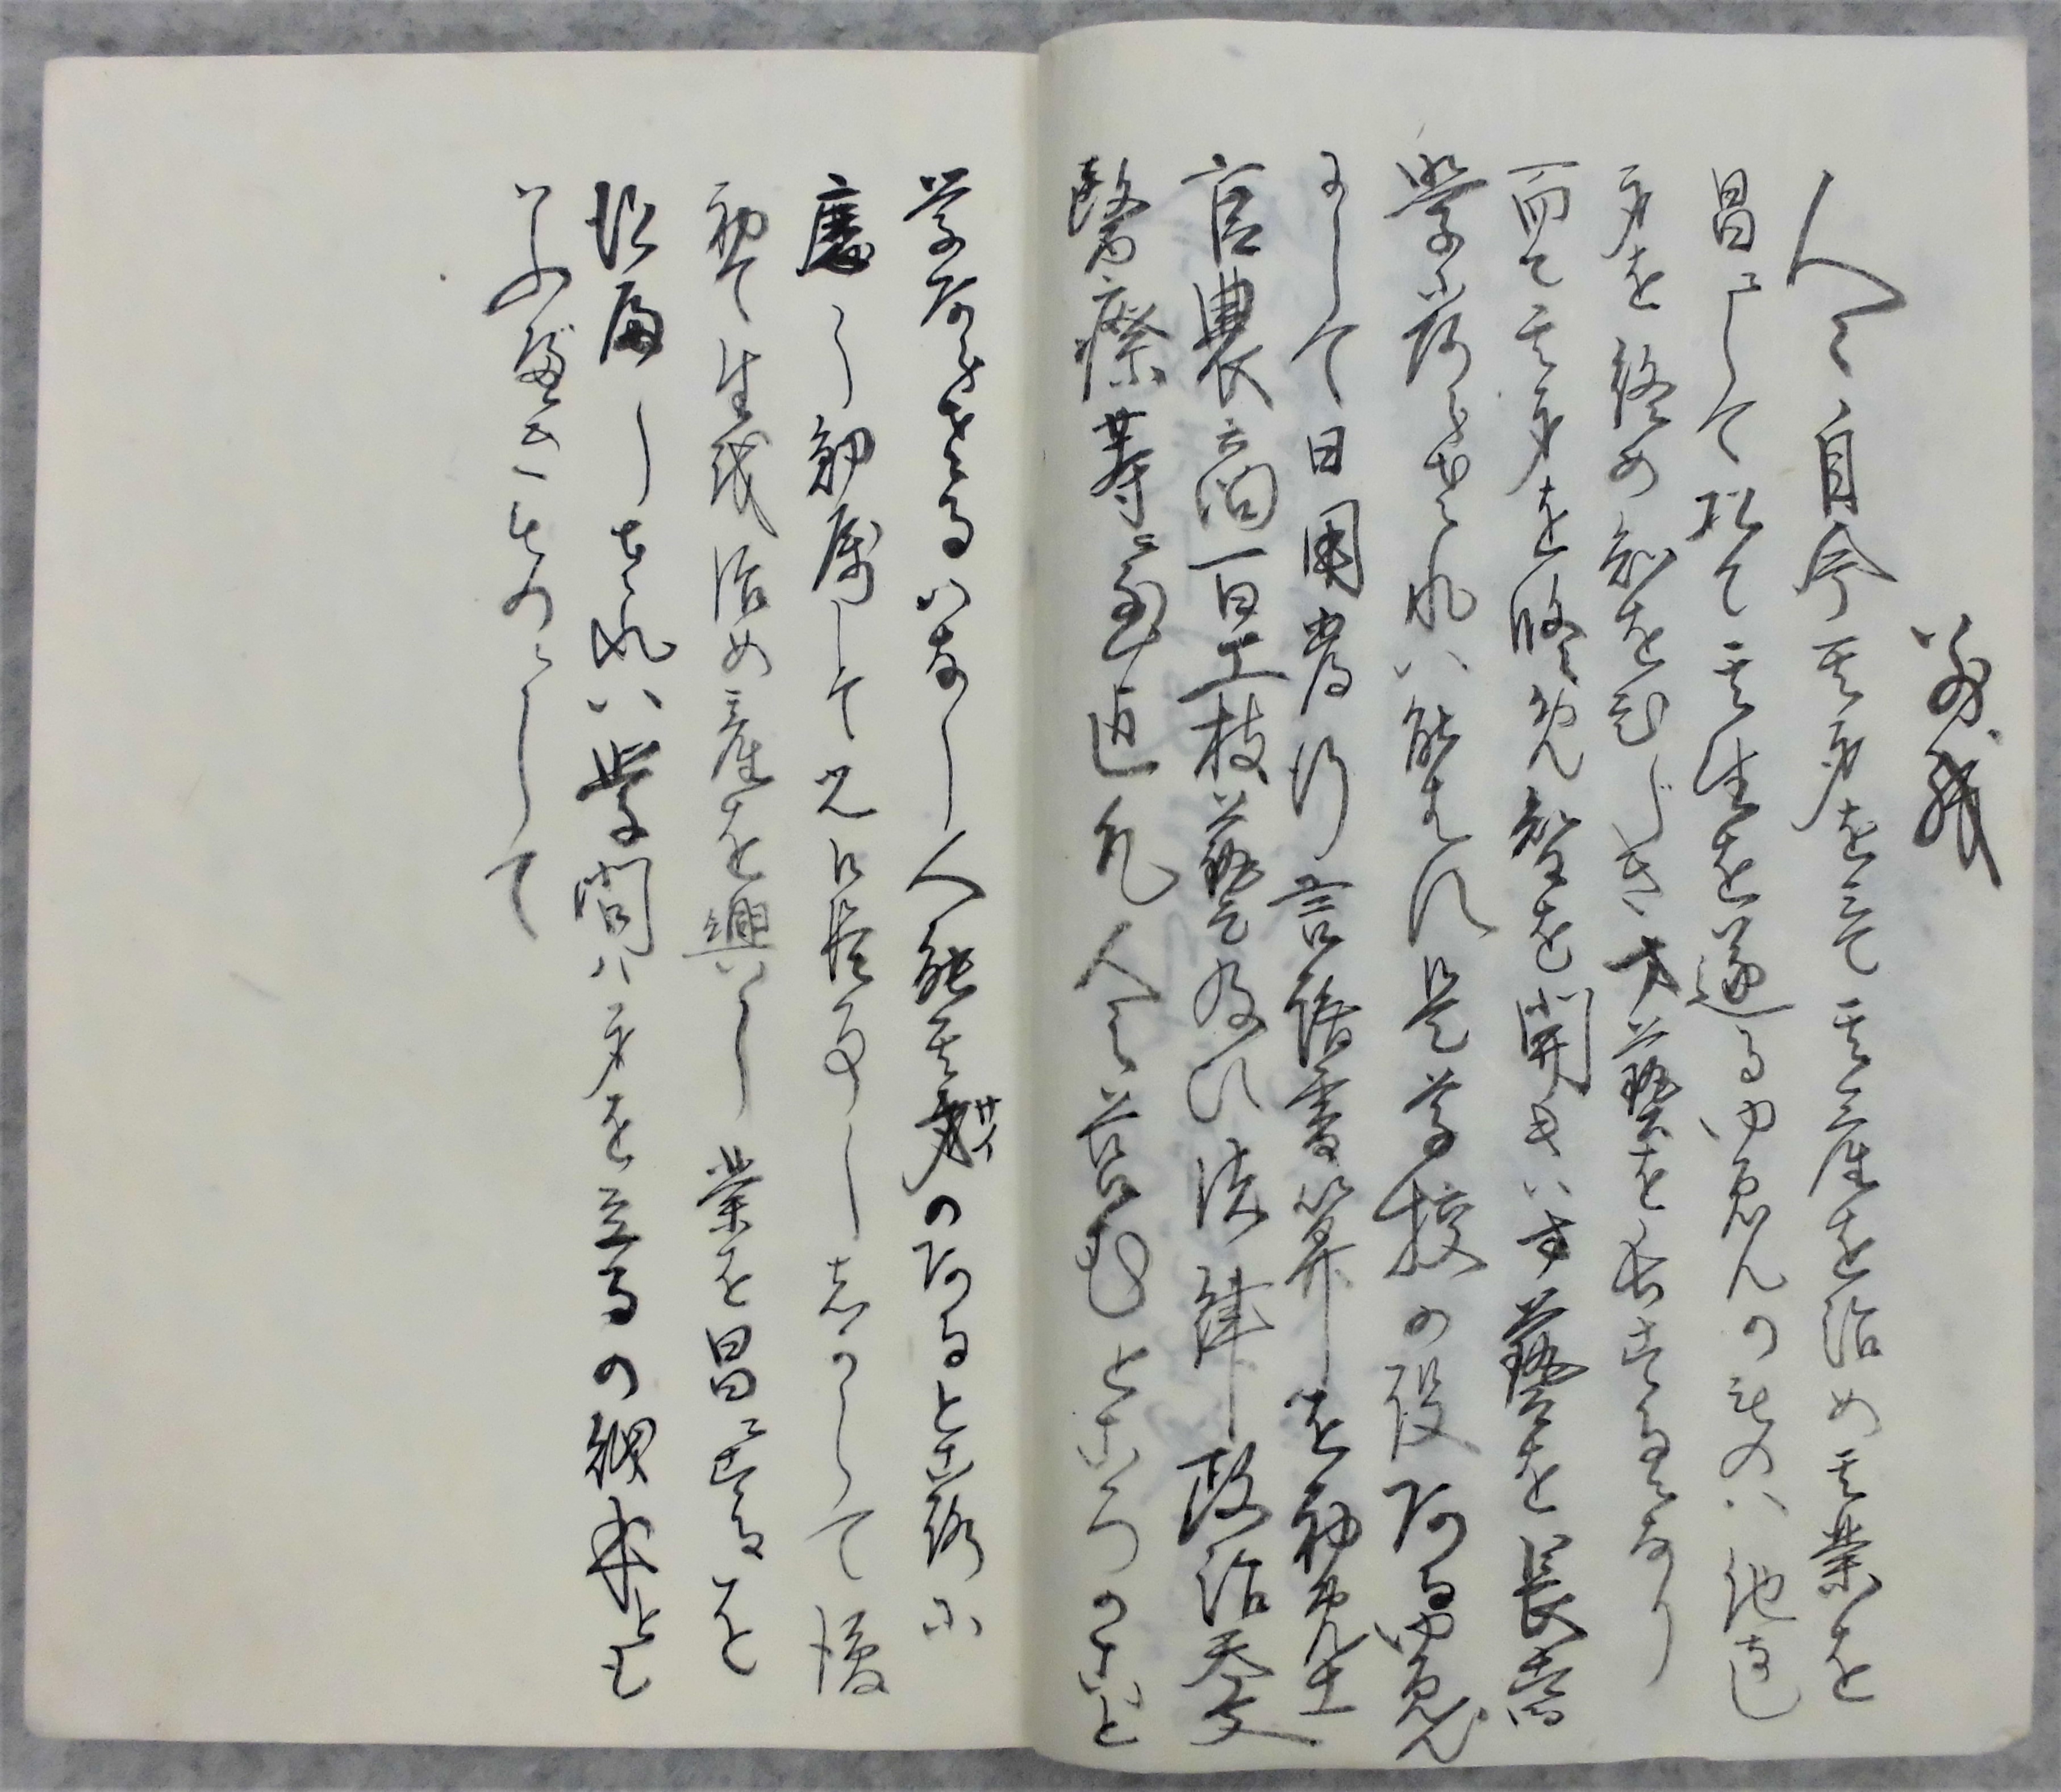 人々自今其身を立て其産を治め其業を
昌ニして以て其生を遂るゆゑんのものハ他なし
身を修め知をひらき才藝を長するなり
而て其身を修め智を開き才藝を長する
學にあらされハ能はす是学校の設あるゆゑん
にして日用常行言語書算を初め士
官農商百工技藝及ひ法律政治天文
醫療等ニ至迄凡人の営むところのこと
学あらさるハなし人能其才サイのあるところに
應し勉励して之に従事ししかして後
初て生を治め産を興し業を昌ニするを
得へしされハ學問ハ身を立るの財本とも
いふべきものにして